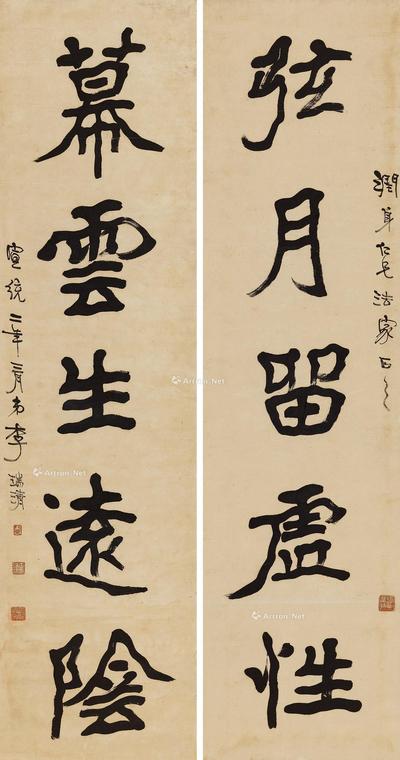 潤身仁兄法家正之
弦月留虛性
幕雲生遠陰
宣統二年二月弟李瑞清
Artron.Net
Artron.Net
Artron.Net
Artron.Net